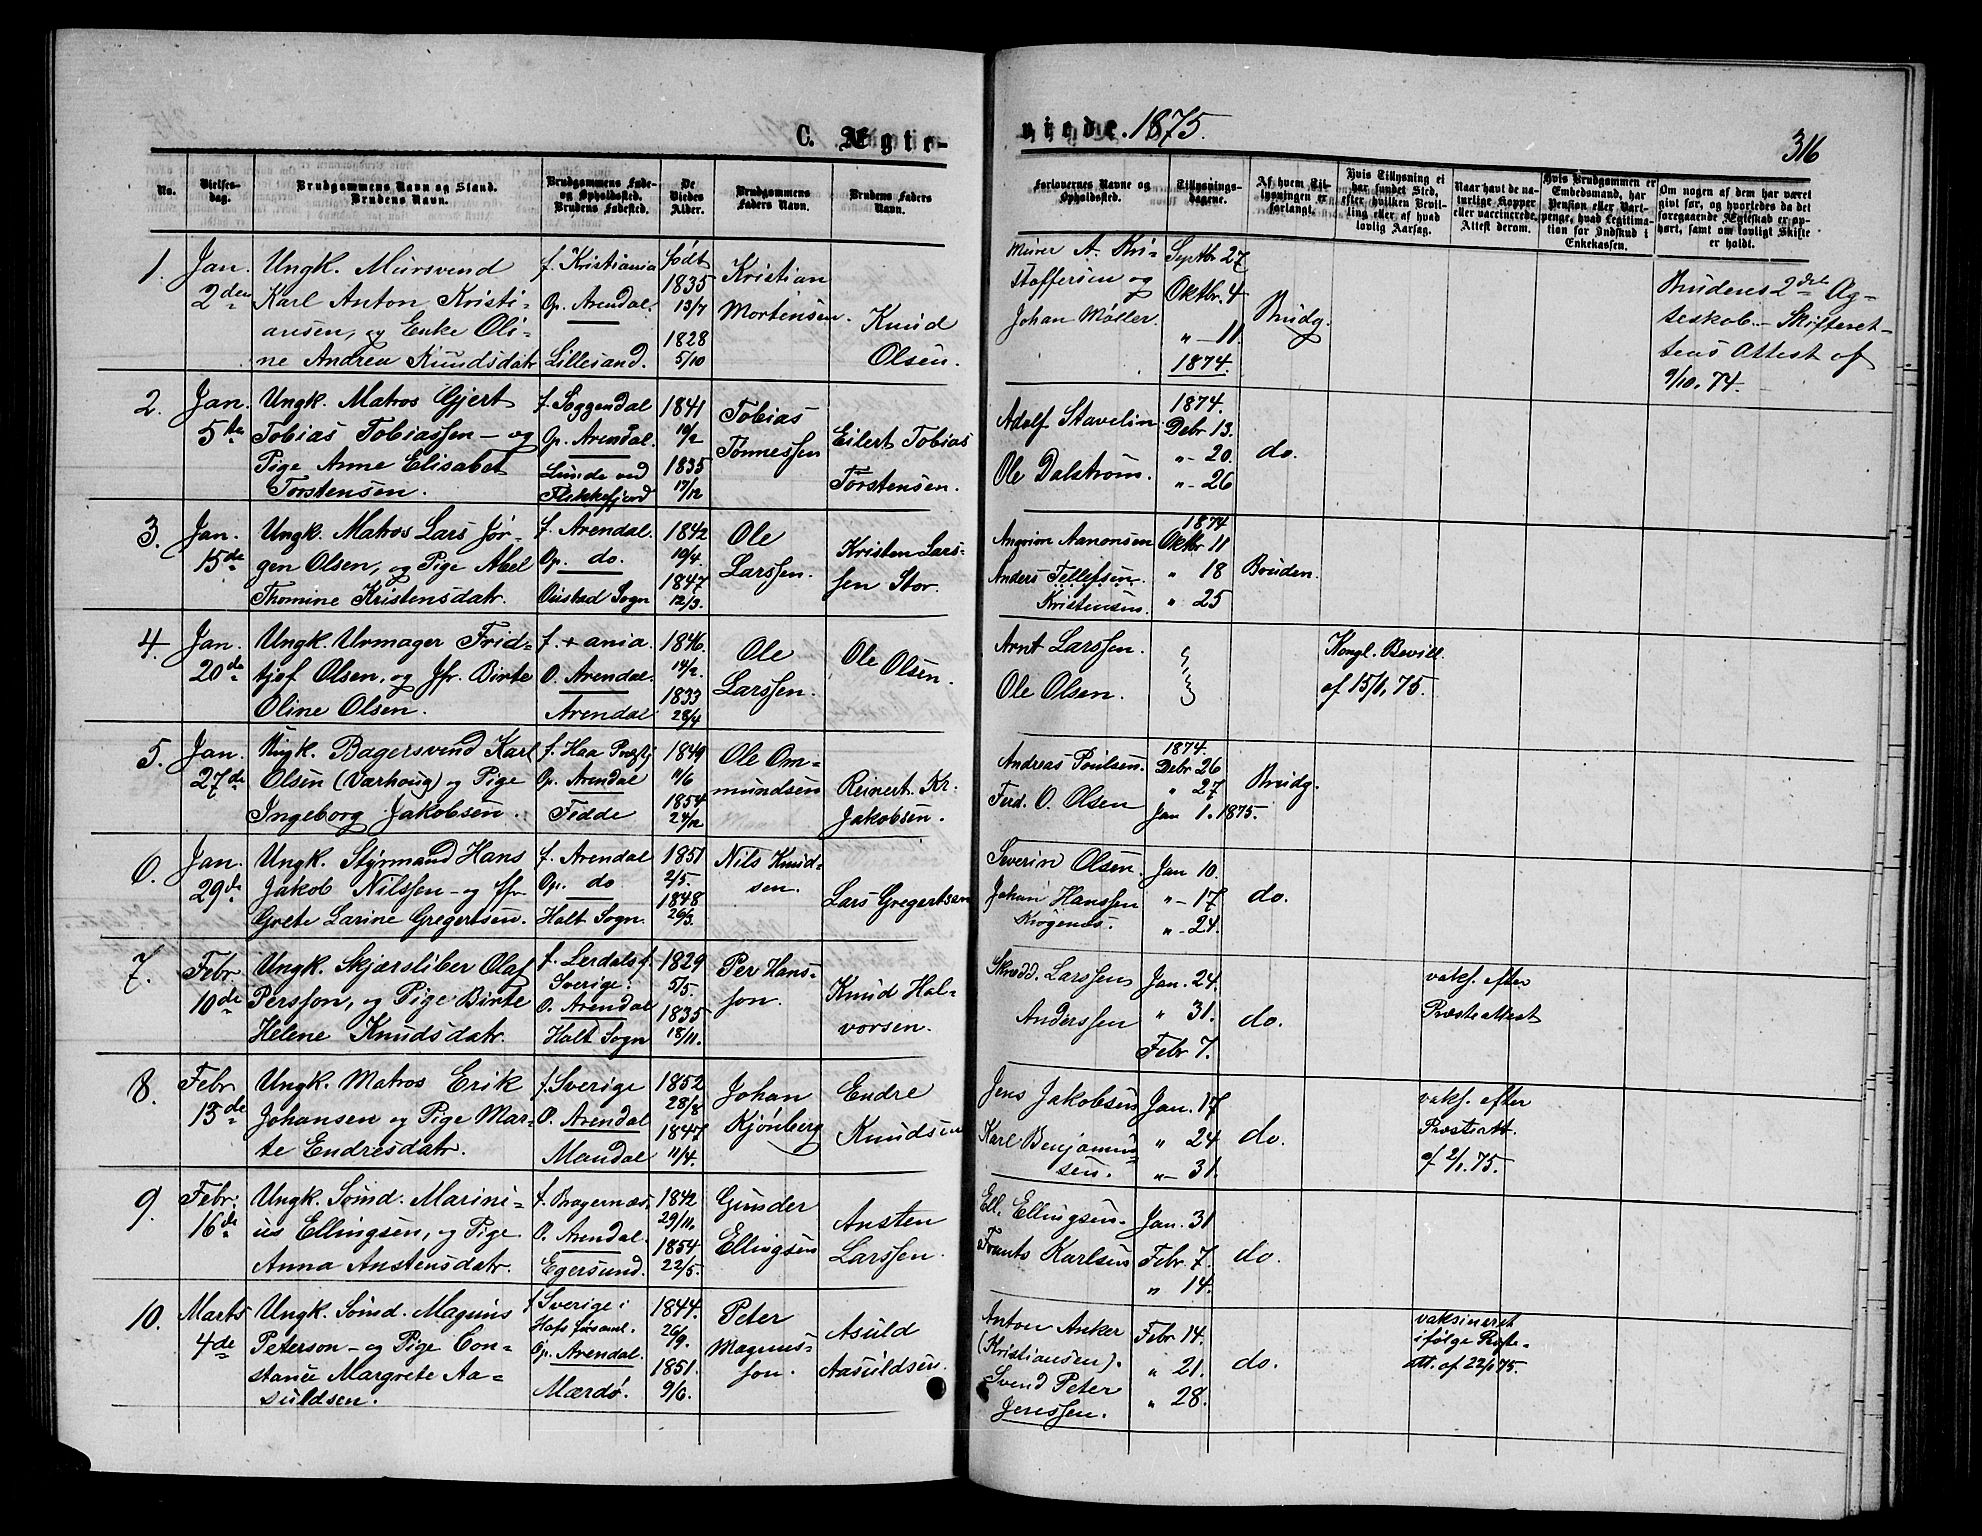 C. Ægte-
viede. 1875.
316
No.
Vielses-
dag.
Brudgommens Navn og Stand.
Brudens Navn.
Brudgommens Føde-
og Opholdssted.
Brudens Fødested.
De
Viedes
Alder.
Brudgommens
Faders Navn.
Brudens Faders
Navn.
Forlovernes Navne og
Opholdssted.
Tillysnings-
dagene.
Af hvem Til-
lysningen er
forlangt.
Hvis Tillysning ei
har fundet Sted,
efter hvilken Bevil-
ling eller af hvad
lovlig Aarsag.
Naar havt de na-
turlige Kopper
eller vaccinerede.
Attest derom.
Hvis Brudgommen er
Embedsmand, har
Pension eller Vart-
penge, hvad Legitima-
tion for Indskud i
Enkekassen.
Om nogen af dem har været
gift før, og hvorledes da det
foregaaende Ægteskab er op-
hørt, samt om lovligt Skifte
er holdt.
1.
Jan.
2den
Ungk. Mursvend
Karl Anton Kristi-
ansen, og Enke Oli-
ne Andrea Knudsdatr
f. Kristiania
Op. Arendal.
Lillesand.
født
1835
13/7
1828
5/10
Kristian
Mortensen.
Knud
Olsen.
Murer A. Kri-
stoffersen og
Johan Møller.
Septbr 27
Oktbr. 4
" - 11
1874
Brudg.
Brudens 2det Æg-
teskab - Skifteret-
tens Attest af
9/10. 74.
2.
Jan.
5te
Ungk. Matros Gjert
Tobias Tobiassen - og
Pige Anne Elisabet
Torstensen.
f. Soggendal
Op. Arendal.
Lunde ved
Flekkefjord
1841
19/2
1835
17/12
Tobias
Tønnessen
Eilert Tobias
Torstensen.
Adolf Stavelin
Ole Dalstrøm.
1874.
Debr 13.
" - 20.
" - 26
do.
3.
Jan.
15de
Ungk. Matros Lars Jør-
gen Olsen, og Pige Abel
Thomine Kristensdatr.
f. Arendal.
Op. do.
Øiestad Sogn
1842
19/4.
1847
12/3.
Ole
Larssen.
Kristen Lars-
sen Stor.
Aanonsen
Anders Tellefsen
Kristensen.
1874
Oktbr 11
" 18
" 25
Bruden.
4.
Jan.
20de
Ungk. Urmager Frid-
tjof Olsen, og Jfr. Birte
Oline Olsen.
f. +ania.
O. Arendal.
Arendal
1846.
14/2.
1833
28/4
Ole
Larssen.
Ole Olsen.
Arnt Larssen.
Ole Olsen.
Kongl. Bevill.
af 15/1, 75.
5.
Jan.
27de
Ungk. Bagersvend Karl
Olsen (Varhoug) og Pige
Ingeborg Jakobsen.
f. Haa Præstgj
Op. Arendal
Fedde
1849
11/6
1854
24/12
Ole Om-
mundsen
Reinert Kr.
Jakobsen.
Andreas Poulsen.
Ferd. O. Olsen
1874.
Debr 26
" 27
Jan 1. 1875.
Brudg.
6.
Jan.
29de
Ungk. Styrmand Hans
Jakob Nilssen - og Jfr.
Grete Larine Gregertsen.
f. Arendal
Op. do
Holt Sogn.
1851
2/5.
1848
26/3.
Nils Knud-
sen.
Lars Gregertsen
Severin Olsen.
Johan Hanssen
Krøgenes.
Jan 10.
" - 17
" - 24.
do.
7.
Febr
10de
Ungk. Skjærsliber Olaf
Persson, og Pige Birte
Helene Knudsdatr.
f. Lerdals f.
Sverige.
O. Arendal
Holt Sogn
1829
5/5.
1835
18/11.
Per Hans-
son.
Knud Hal-
vorsen.
Skrædd. Larssen
Anderssen
Jan. 24.
" 31.
Febr 7.
do.
vaks. efter
Præsteattest
8.
Febr
13de
Ungk. Matros Erik
Johansen og Pige Mar-
te Endresdatr.
f. Sverige
O. Arendal
Mandal
1852
28/8
1847
11/4.
Johan
Kjønberg
Endre
Knudsen
Jens Jakobsen
Karl Benjamin-
sen.
Jan. 17
" 24
" - 31.
do.
vaks. efter
Præsteatt.
af 2/1. 75.
9.
Febr.
16de
Ungk. Sømd. Marini-
us Ellingsen, og Pige
Anna Anstensdatr.
f. Bragernæs.
O. Arendal.
Egersund.
1842
29/11.
1854
22/5.
Gunder
Ellingsen
Ansten
Larssen.
Ell. Ellingsen.
Frants Karlsen
Jan. 31
Febr 7.
" 14.
do.
10.
Marts
4de
Ungk. Sømd. Magnus
Peterson - og Pige Con-
stance Margrete Aa-
suldsen.
f Sverige i
Hofs forsaml.
Op. Arendal.
Mærdø.
1844.
26/9.
1851.
9/6.
Peter
Magnus-
son.
Asuld
Aasuldsen.
Anton Anker
(Kristiansen).
Svend Peter
Jenssen.
Febr 14.
" 21.
" 28.
do.
vaksineret
ifølge Præste-
att. af 22/1 75.